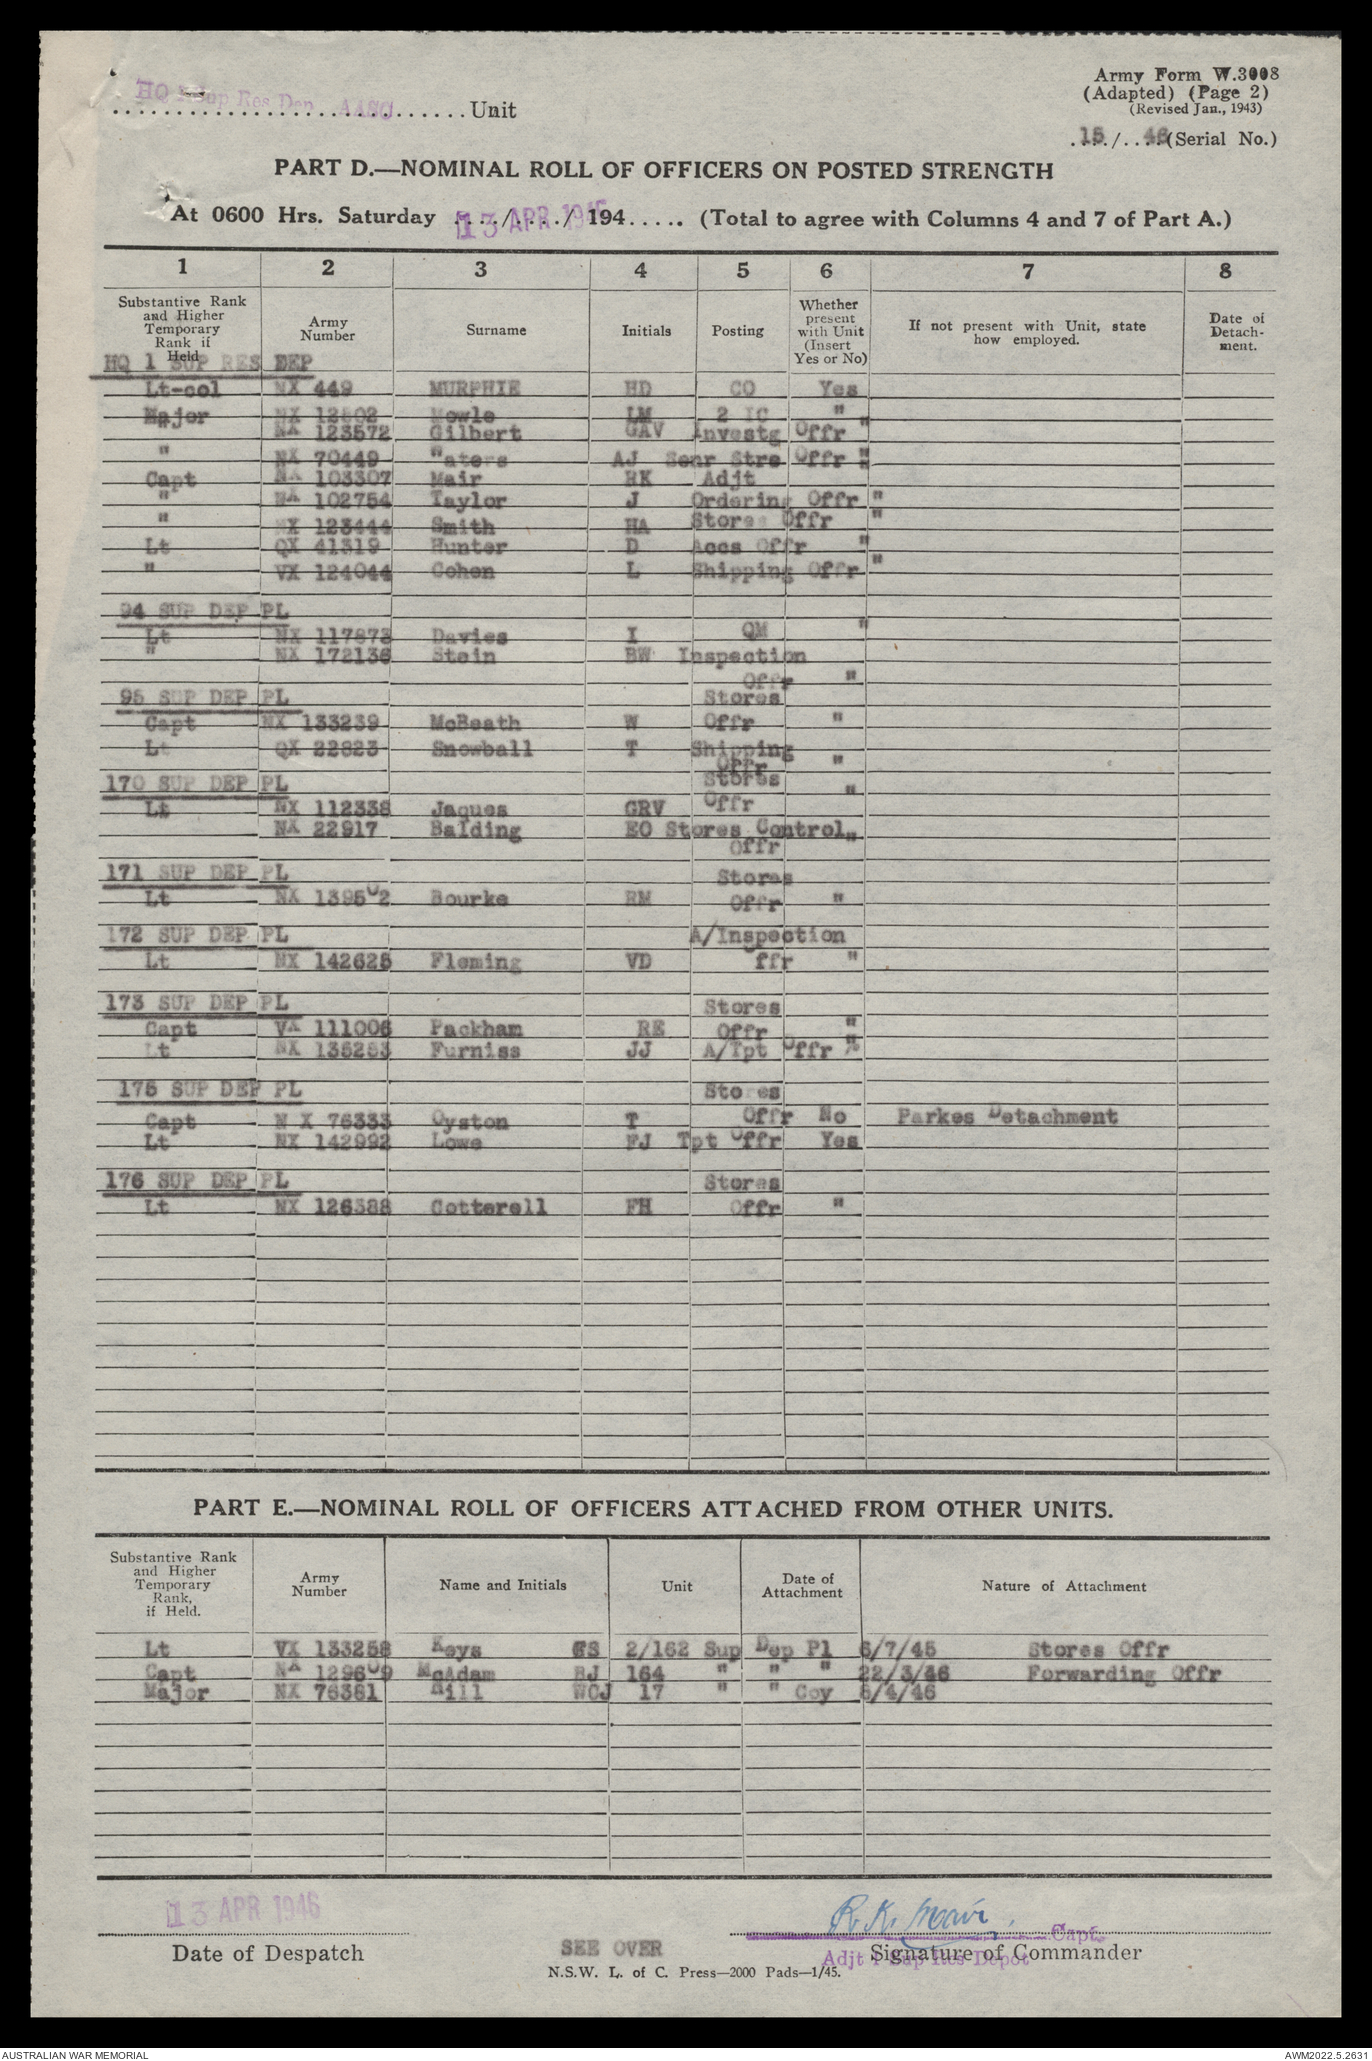 Army Form W.3008
(Adapted) (Page 2)
(Revised Jan., 1943)
HQ Sup Res Dep AASC Unit
15/46 (Serial No.)
PART D.—NOMINAL ROLL OF OFFICERS ON POSTED STRENGTH
At 0600 Hrs. Saturday 13 APR 1946 / 194..... (Total to agree with Columns 4 and 7 of Part A.)
1 2 3 4 5 6 7 8
Substantive Rank and Higher Temporary Rank if Held Army Number Surname Initials Posting Whether present with Unit (Insert Yes or No) If not present with Unit, state how employed. Date of Detachment.
HQ 1 SUP RES DEP
Lt-col NX 449 MURPHIE HD CO Yes
Major NX 12802 Mowle LM 2 IC "
" NX 123572 Gilbert GAV Investg Offr "
" NX 70449 Waters AJ Senr Stre Offr "
Capt NX 103307 Mair RK Adjt
" NX 102754 Taylor J Ordering Offr "
" NX 123444 Smith HA Stores Offr "
Lt QX 41319 Hunter D Accs Offr "
" VX 124044 Cohen L Shipping Offr "
94 SUP DEP PL
Lt NX 117873 Davies I QM "
" NX 172136 Stein BW Inspection
Offr "
95 SUP DEP PL Stores
Capt NX 133239 McBeath W Offr "
Lt QX 22823 Snowball T Shipping
Offr "
170 SUP DEP PL Stores "
Lt NX 112338 Jaques GRV Offr
NX 22917 Balding EO Stores Control "
Offr
171 SUP DEP PL Stores
Lt NX 139502 Bourke RM Offr "
172 SUP DEP PL A/Inspection
Lt NX 142625 Fleming VD ffr "
173 SUP DEP PL Stores
Capt VX 111006 Packham RE Offr "
Lt NX 135253 Furniss JJ A/Tpt Offr "
175 SUP DEP PL Stores
Capt N X 76333 Oyston T Offr No Parkes Detachment
Lt NX 142992 Lowe FJ Tpt Offr Yes
176 SUP DEP PL Stores
Lt NX 126388 Cotterell FH Offr "
PART E.—NOMINAL ROLL OF OFFICERS ATTACHED FROM OTHER UNITS.
Substantive Rank and Higher Temporary Rank, if Held. Army Number Name and Initials Unit Date of Attachment Nature of Attachment
Lt VX 133258 Keys GS 2/162 Sup Dep Pl 6/7/45 Stores Offr
Capt NX 129609 McAdam BJ 164 " " " 22/3/46 Forwarding Offr
Major NX 76381 Hill WCJ 17 " " Coy 5/4/46
13 APR 1946
R.K. Mair. Capt.
Date of Despatch SEE OVER Signature of Commander
Adjt 1 Sup Res Depot
N.S.W. L. of C. Press—2000 Pads—1/45.
AUSTRALIAN WAR MEMORIAL AWM2022.5.2631